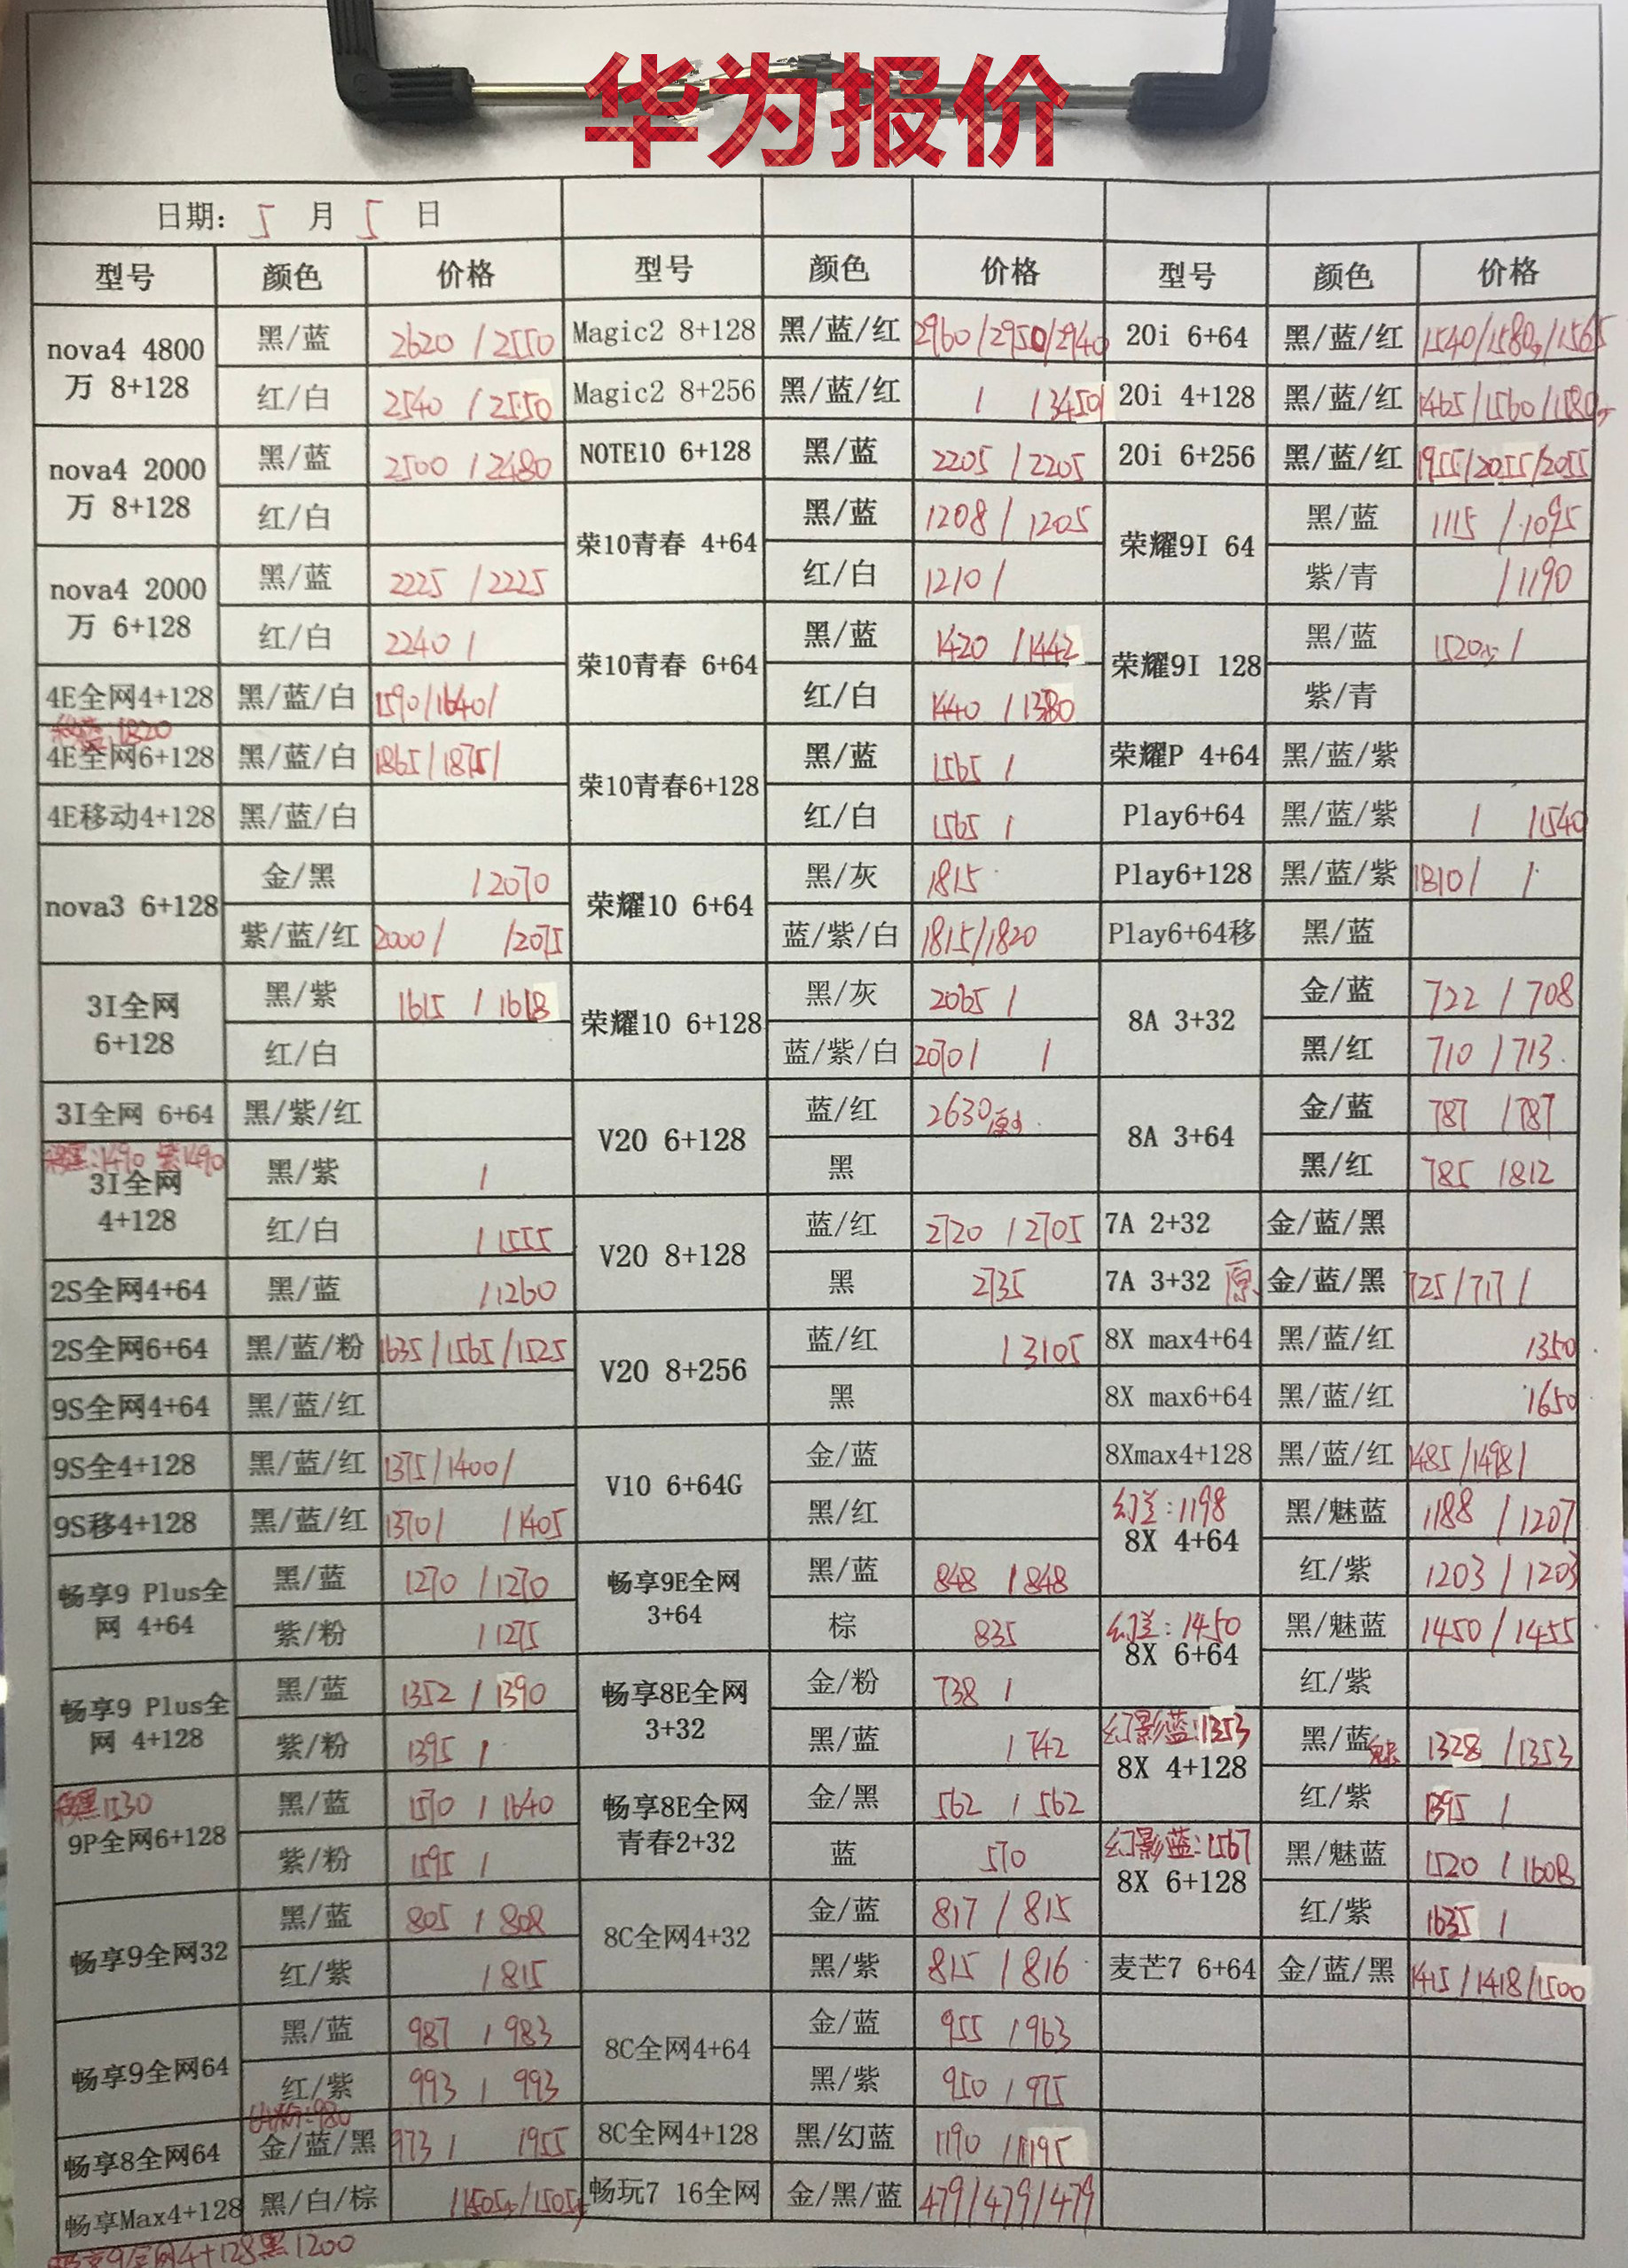 华为报价
日期: 5 月 5 日
型号 颜色 价格 型号 颜色 价格 型号 颜色 价格
nova4 4800万 8+128 黑/蓝 2620 / 2550
红/白 2540 / 2550
nova4 2000万 8+128 黑/蓝 2500 / 2480
红/白
nova4 2000万 6+128 黑/蓝 2225 / 2225
红/白 2240 /
4E全网4+128 黑/蓝/白 1590/1640/
1820
4E全网6+128 黑/蓝/白 1865/1875/
4E移动4+128 黑/蓝/白
nova3 6+128 金/黑 / 2070
紫/蓝/红 2000/ /2075
3I全网 6+128 黑/紫 1615 / 1618
红/白
3I全网 6+64 黑/紫/红
移黑:1490 紫1490
3I全网 4+128 黑/紫 /
红/白 / 1555
2S全网4+64 黑/蓝 / 1260
2S全网6+64 黑/蓝/粉 1635/1565/1525
9S全网4+64 黑/蓝/红
9S全4+128 黑/蓝/红 1375/1400/
9S移4+128 黑/蓝/红 1370/ /1405
畅享9 Plus全网 4+64 黑/蓝 1270 / 1270
紫/粉 / 1275
畅享9 Plus全网 4+128 黑/蓝 1352 / 1390
紫/粉 1395 /
移黑1530
9P全网6+128 黑/蓝 1570 / 1640
紫/粉 1595 /
畅享9全网32 黑/蓝 805 / 808
红/紫 / 815
畅享9全网64 黑/蓝 987 / 983
红/紫 993 / 993
:980
畅享8全网64 金/蓝/黑 973 / 1955
畅享Max4+128 黑/白/棕 /1505/1505
畅享9全网4+128黑1200
Magic2 8+128 黑/蓝/红 2960/2950/2940
Magic2 8+256 黑/蓝/红 / /3450
NOTE10 6+128 黑/蓝 2205 / 2205
荣10青春 4+64 黑/蓝 1208 / 1205
红/白 1210 /
荣10青春 6+64 黑/蓝 1420 / 1442
红/白 1440 / 1380
荣10青春6+128 黑/蓝 1565 /
红/白 1565 /
荣耀10 6+64 黑/灰 1815
蓝/紫/白 1815/1820
荣耀10 6+128 黑/灰 2065 /
蓝/紫/白 2070 / /
V20 6+128 蓝/红 2630
黑
V20 8+128 蓝/红 2720 / 2705
黑 2735
V20 8+256 蓝/红 / 3105
黑
V10 6+64G 金/蓝
黑/红
畅享9E全网 3+64 黑/蓝 848 / 848
棕 835
畅享8E全网 3+32 金/粉 738 /
黑/蓝 / 742
畅享8E全网 青春2+32 金/黑 562 / 562
蓝 570
8C全网4+32 金/蓝 817 / 815
黑/紫 815 / 816
8C全网4+64 金/蓝 955 / 963
黑/紫 950 / 975
8C全网4+128 黑/幻蓝 1190 / 1195
畅玩7 16全网 金/黑/蓝 479/479/479
20i 6+64 黑/蓝/红 1540/1580/1565
20i 4+128 黑/蓝/红 1465/1560/1580
20i 6+256 黑/蓝/红 1955/2055/2055
荣耀9I 64 黑/蓝 1115 / 1095
紫/青 / 1190
荣耀9I 128 黑/蓝 1520 /
紫/青
荣耀P 4+64 黑/蓝/紫
Play6+64 黑/蓝/紫 / /1540
Play6+128 黑/蓝/紫 1810/ /
Play6+64移 黑/蓝
8A 3+32 金/蓝 722 / 708
黑/红 710 / 713
8A 3+64 金/蓝 787 / 787
黑/红 785 / 812
7A 2+32 金/蓝/黑
7A 3+32 原 金/蓝/黑 725/717/
8X max4+64 黑/蓝/红 1350
8X max6+64 黑/蓝/红 1650
8Xmax4+128 黑/蓝/红 1485/1498/
幻兰:1198
8X 4+64 黑/魅蓝 1188 / 1207
红/紫 1203 / 1203
幻兰:1450
8X 6+64 黑/魅蓝 1450 / 1455
红/紫
幻影蓝:1353
8X 4+128 黑/蓝魅 1328 / 1353
红/紫 1395 /
幻影蓝:1567
8X 6+128 黑/魅蓝 1520 / 1608
红/紫 1635 /
麦芒7 6+64 金/蓝/黑 1415/1418/1500